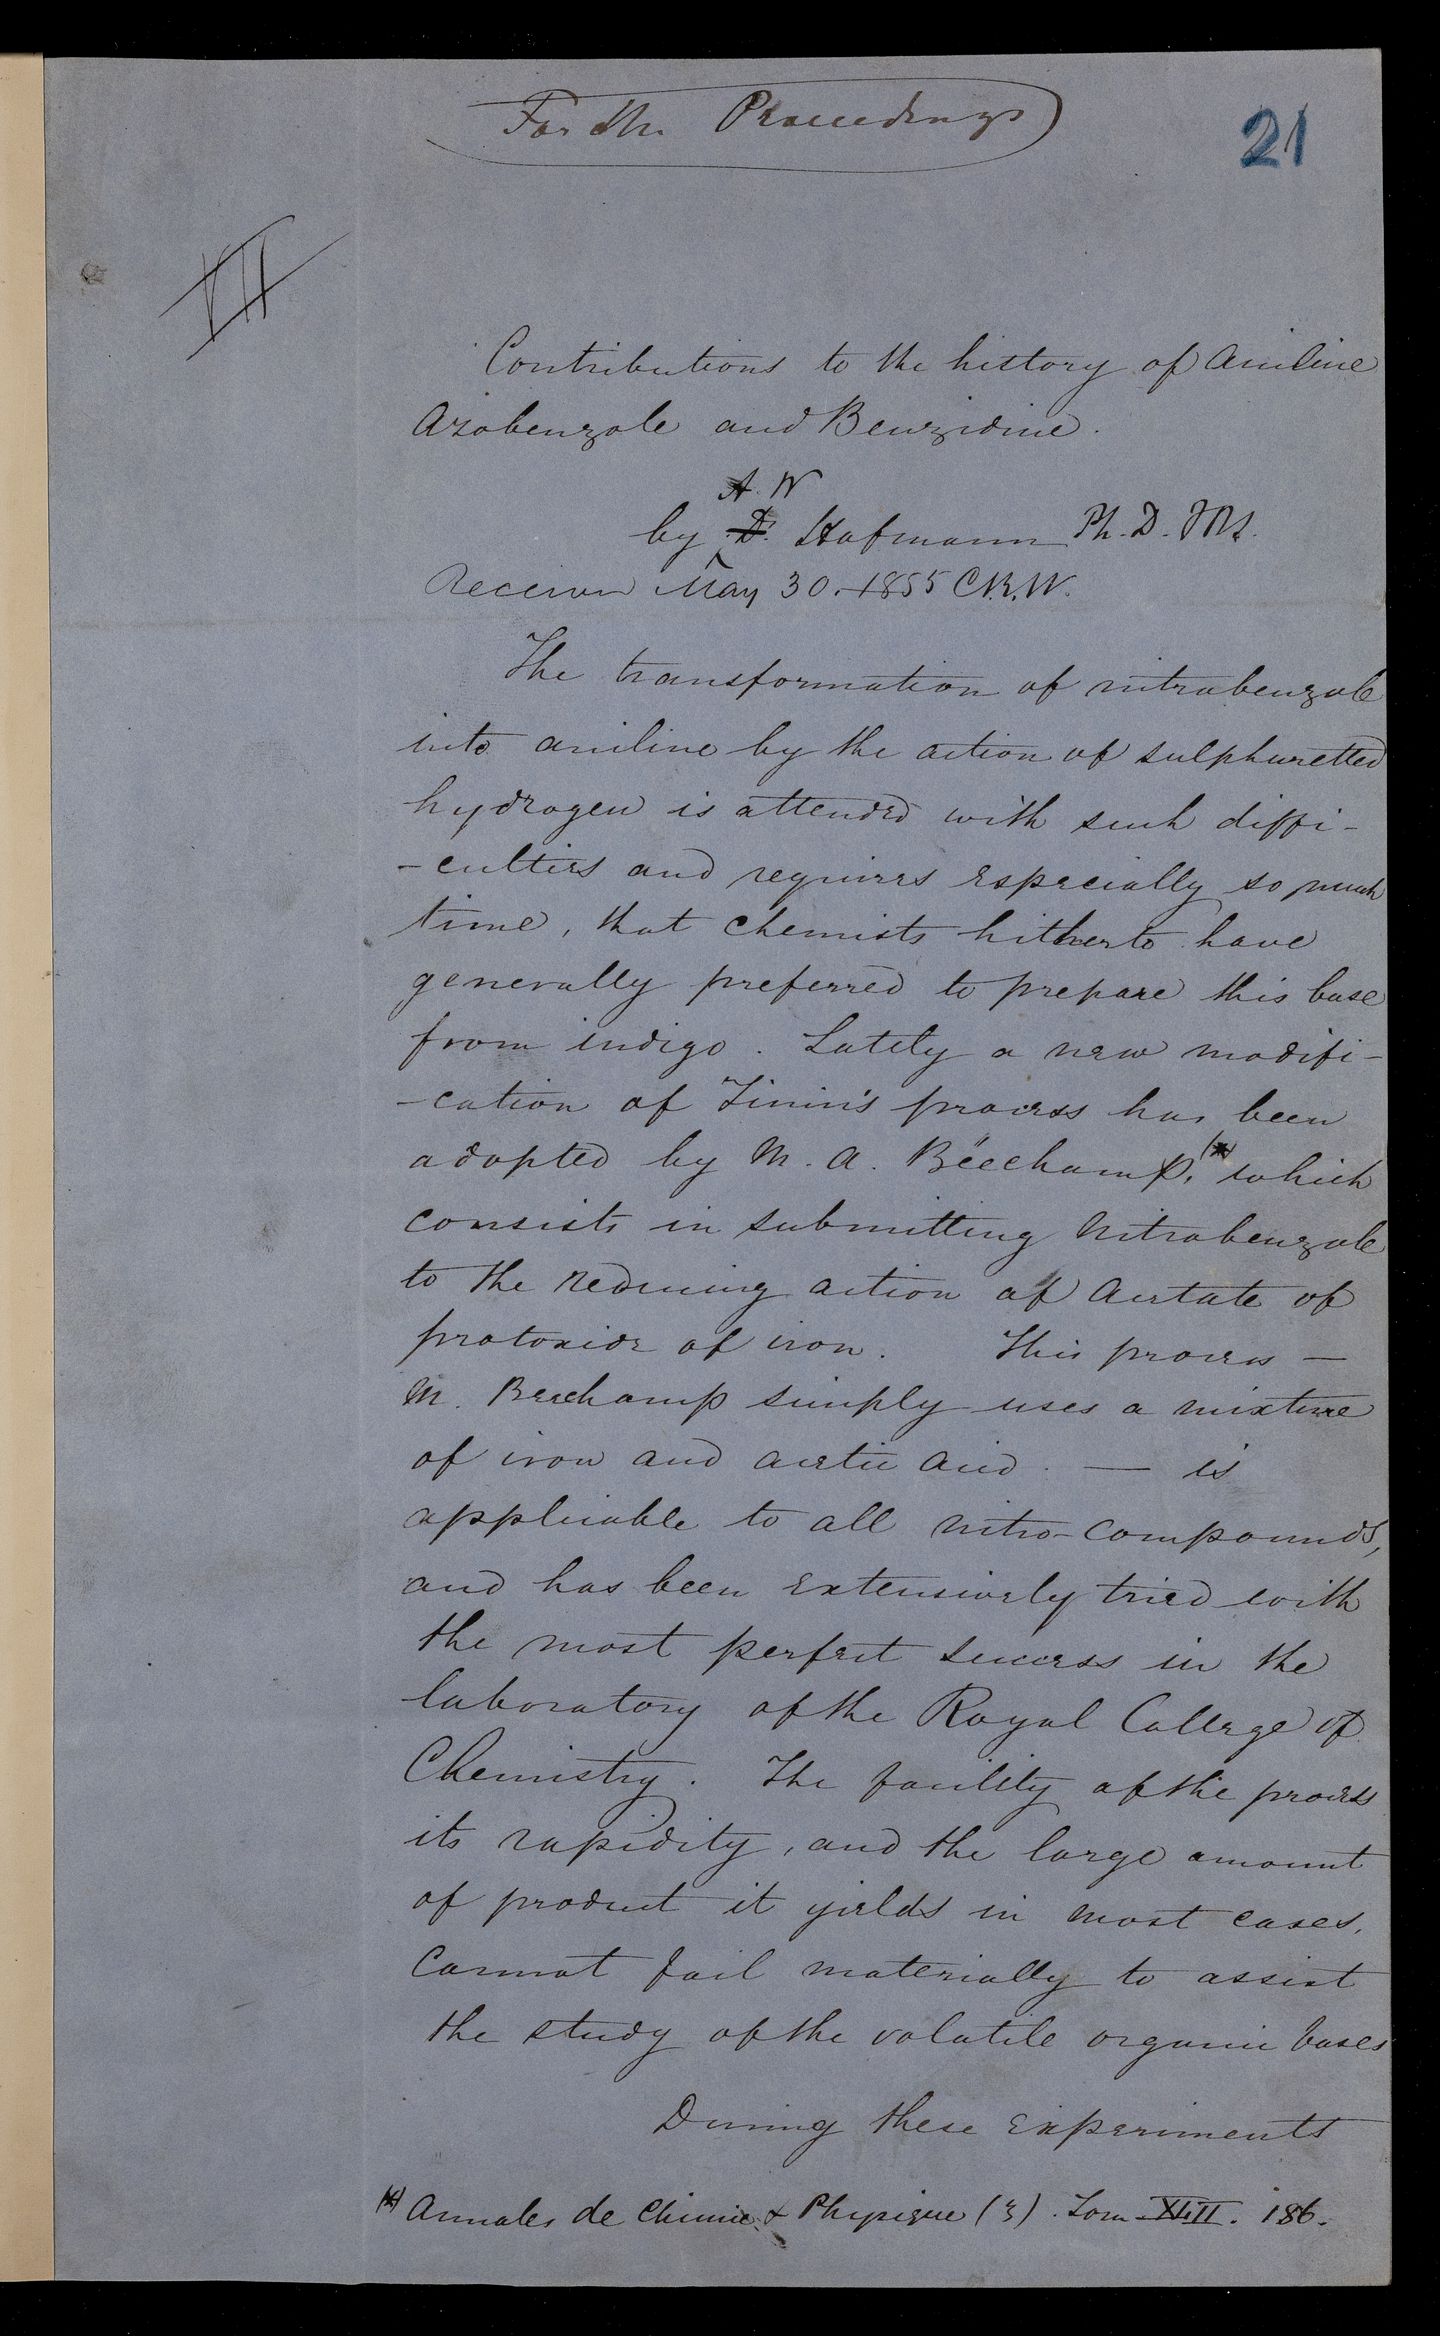 For the Proceedings
21
VII
Contributions to the history of Aniline
Azobenzole and Benzidine.
A. W
by Dr. Hofmann Ph. D. FRS.
Received May 30. 1855 C.R.W.
The transformation of nitrobenzole
into aniline by the action of sulphuretted
hydrogen is attended with such diffi-
-culties and requires especially so much
time, that chemists hitherto have
generally preferred to prepare this base
from indigo. Lately a new modifi-
-cation of Zinin's process has been
adopted by M. A. Béechamp, (*) which
consists in submitting Nitrobenzole
to the reducing action of Acetate of
protoxide of iron. This process —
M. Beechamp simply uses a mixture
of iron and acetic acid. — is
applicable to all nitro-compounds,
and has been extensively tried with
the most perfect success in the
laboratory of the Royal College of
Chemistry. The facility of the process
its rapidity, and the large amount
of product it yields in most cases,
cannot fail materially to assist
the study of the volatile organic bases
During these experiments
(*) Annales de Chimie & Physique (3). Tom XLII. 186.